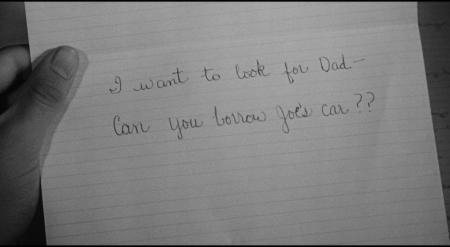 I want to look for Dad—
Can you borrow Joe's car??